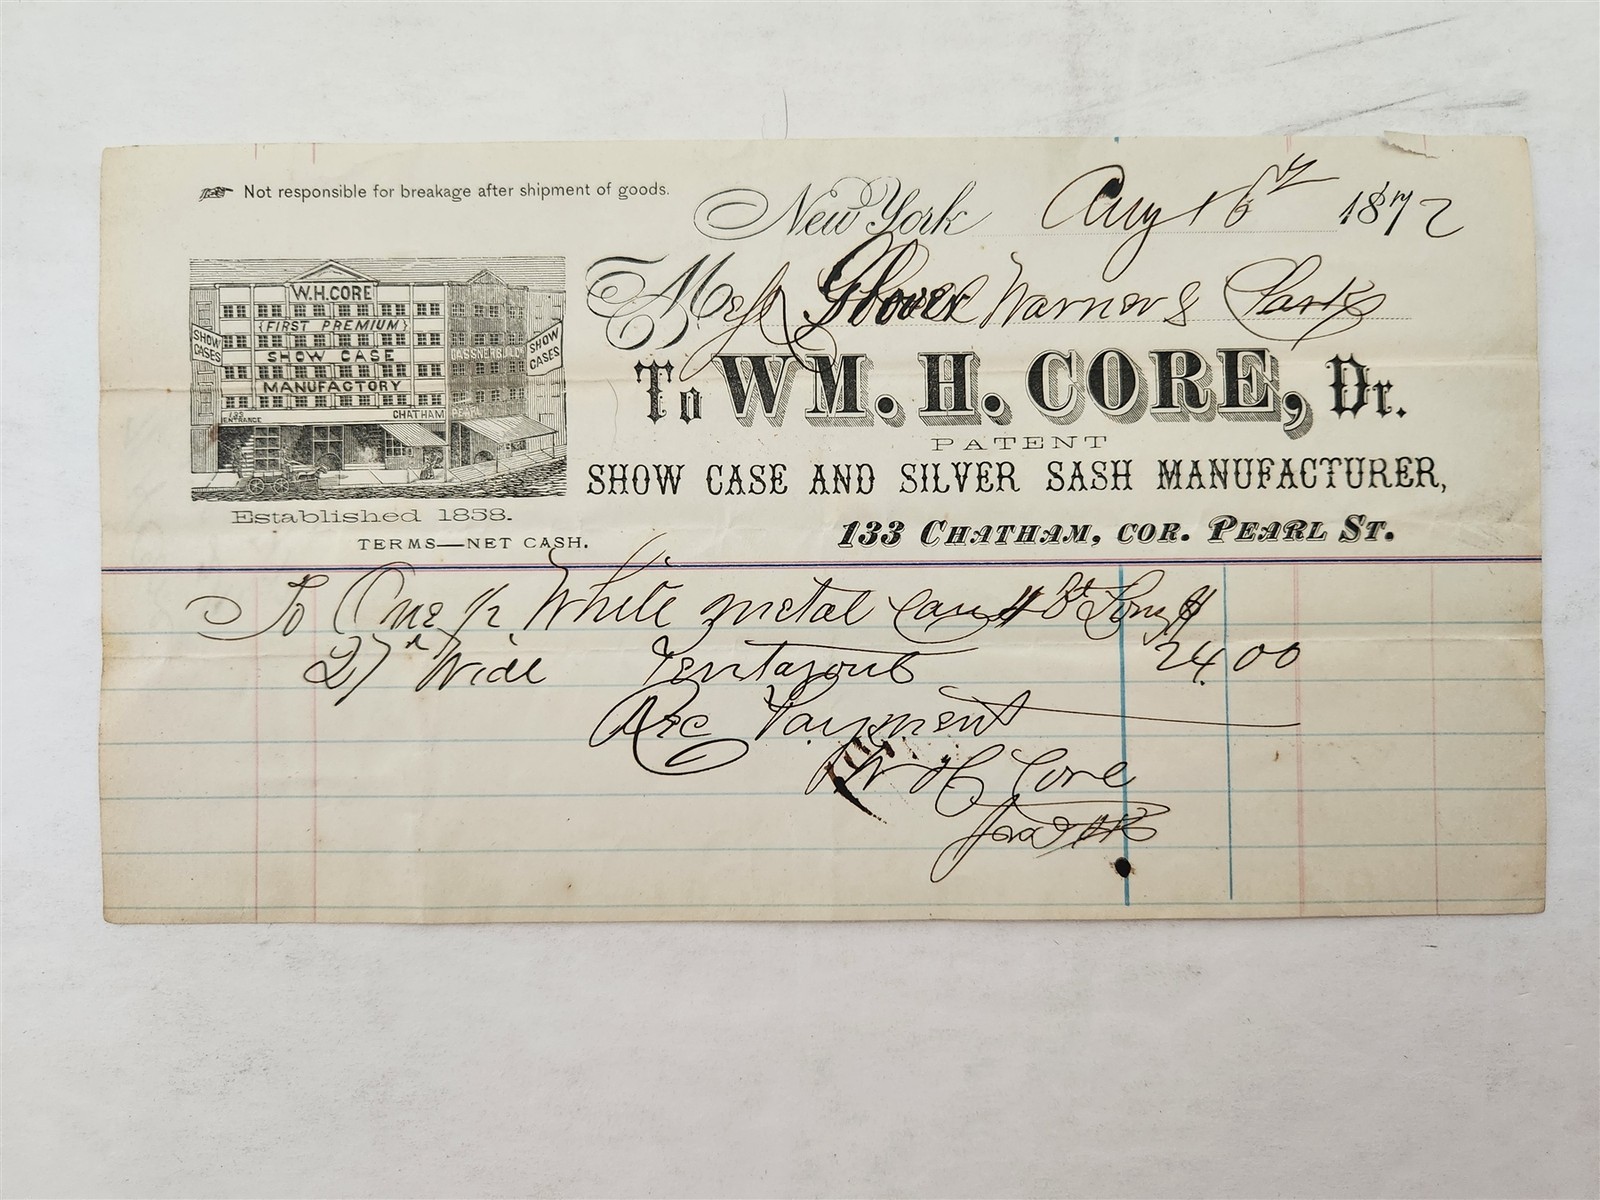 Not responsible for breakage after shipment of goods.
New York Aug 16th 1872
Mess Glover Warner &
To WM. H. CORE, Dr.
PATENT
SHOW CASE AND SILVER SASH MANUFACTURER,
133 CHATHAM, COR. PEARL ST.
W.H. CORE
FIRST PREMIUM
SHOW CASE
MANUFACTORY
SHOW CASES
SHOW CASES
133 ENTRANCE
CHATHAM
PEARL
Established 1858.
TERMS—NET CASH.
To One White metal Case 8 ft Long $
27 in Wide 24.00
Rec Payment
W H Core